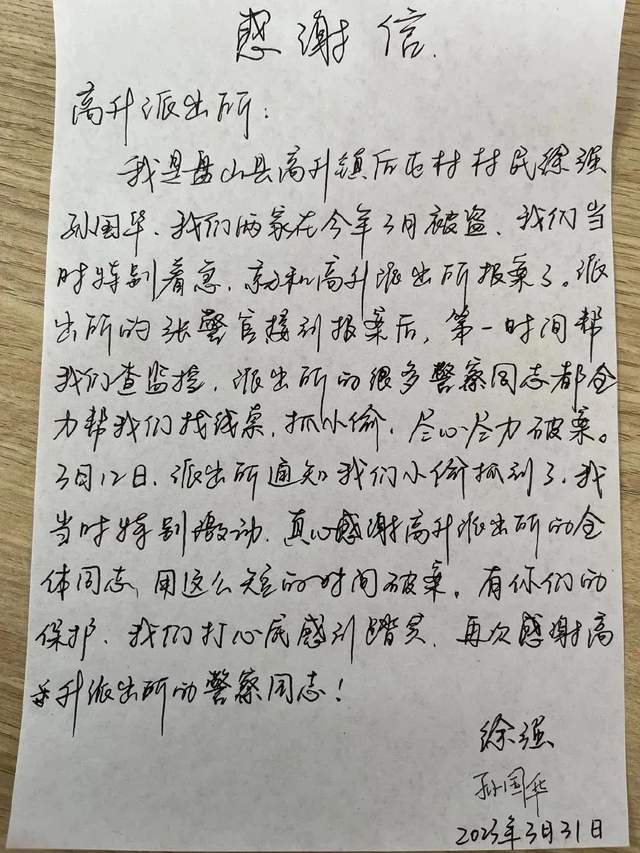 感谢信.
高升派出所:
我是盘山县高升镇后屯村村民徐强
孙国华、我们两家在今年3月被盗、我们当
时特别着急、就和高升派出所报案了。派
出所的张警官接到报案后,第一时间帮
我们查监控、派出所的很多警察同志都全
力帮我们找线索、抓小偷、尽心尽力破案。
3月12日、派出所通知我们小偷抓到了、我
当时特别激动、真心感谢高升派出所的全
体同志、用这么短的时间破案。有你们的
保护、我们打心底感到踏实、再次感谢高
升派出所的警察同志!
徐强
孙国华
2023年3月31日